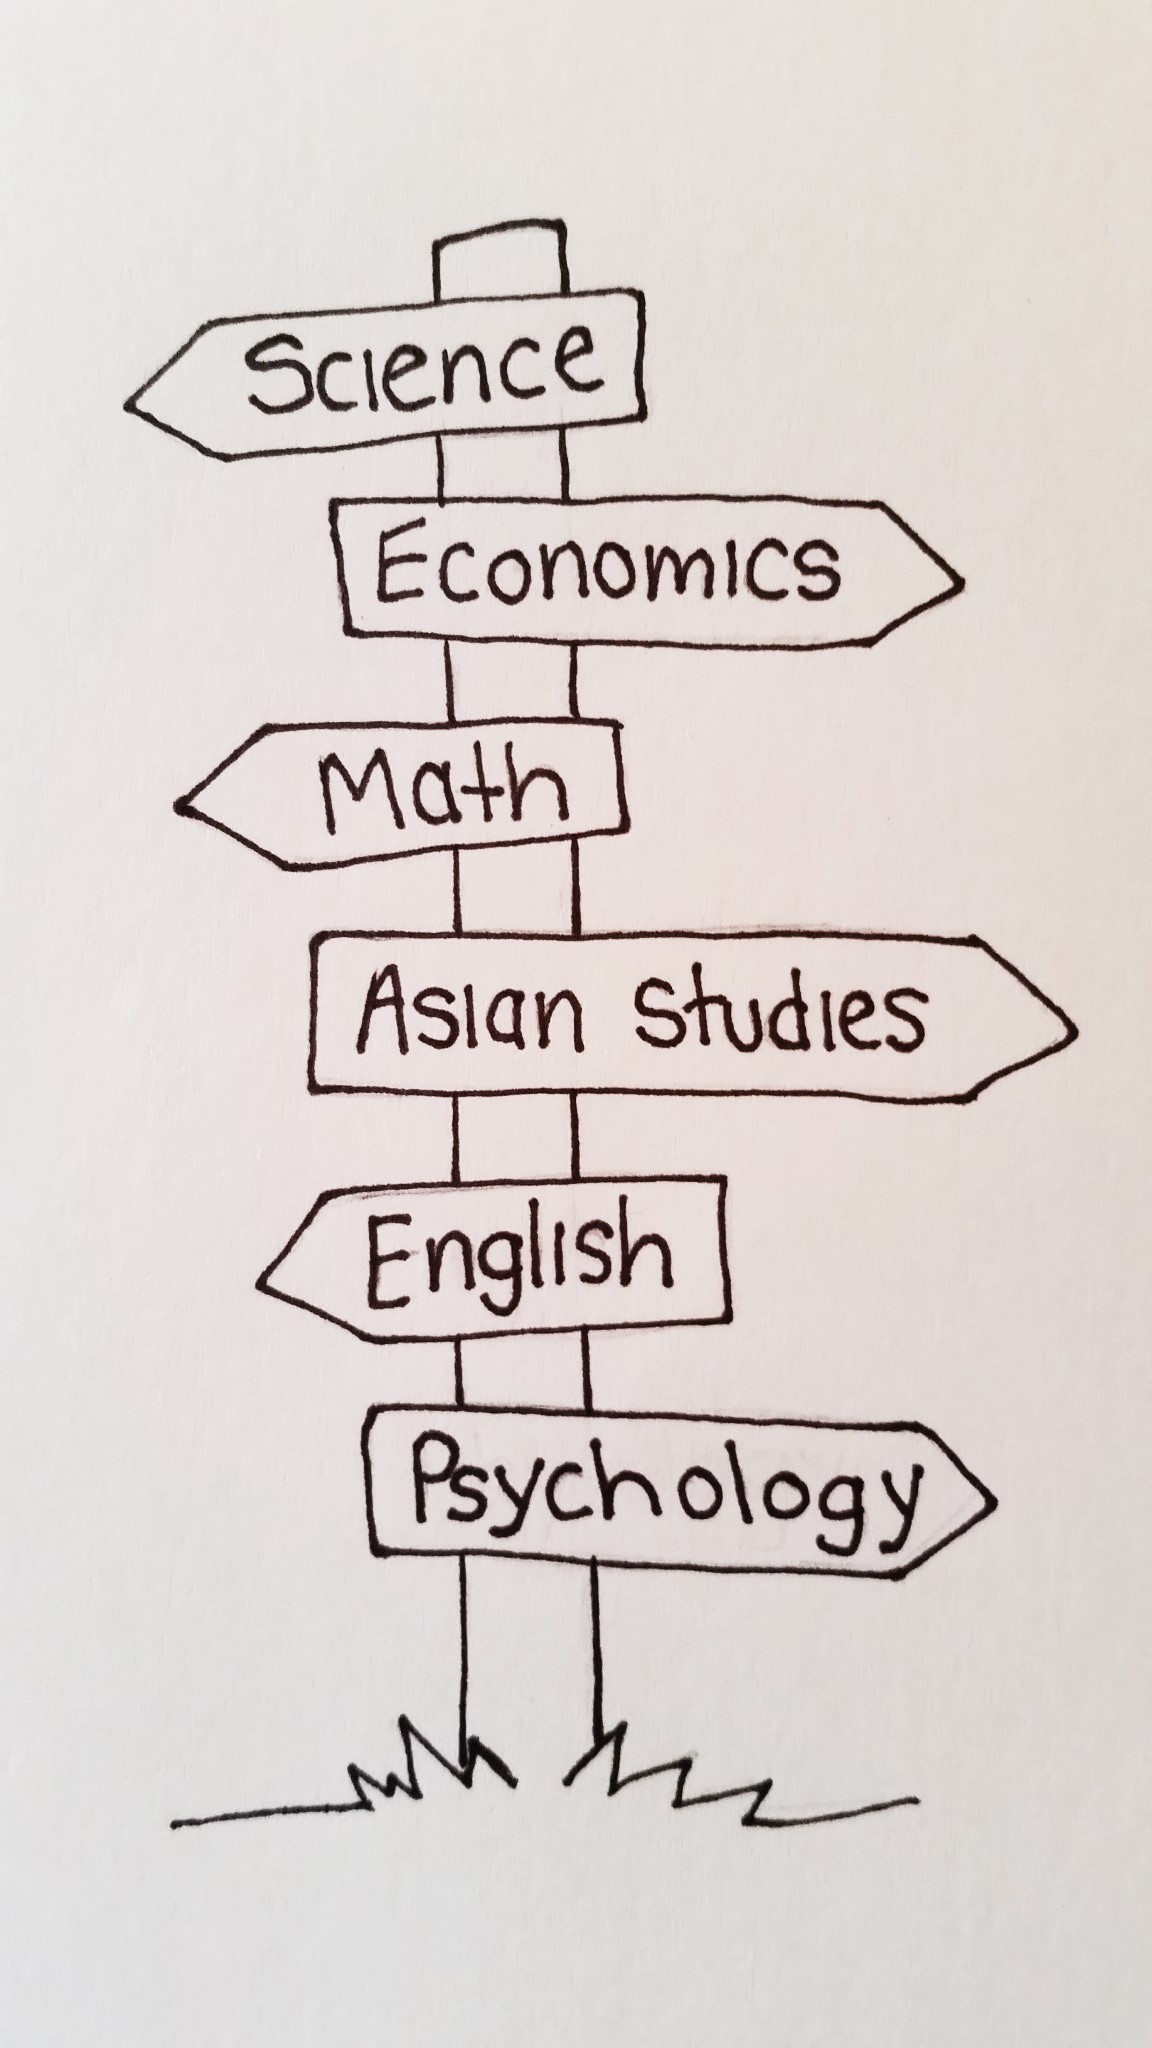 Science
Economics
Math
Asian Studies
English
Psychology